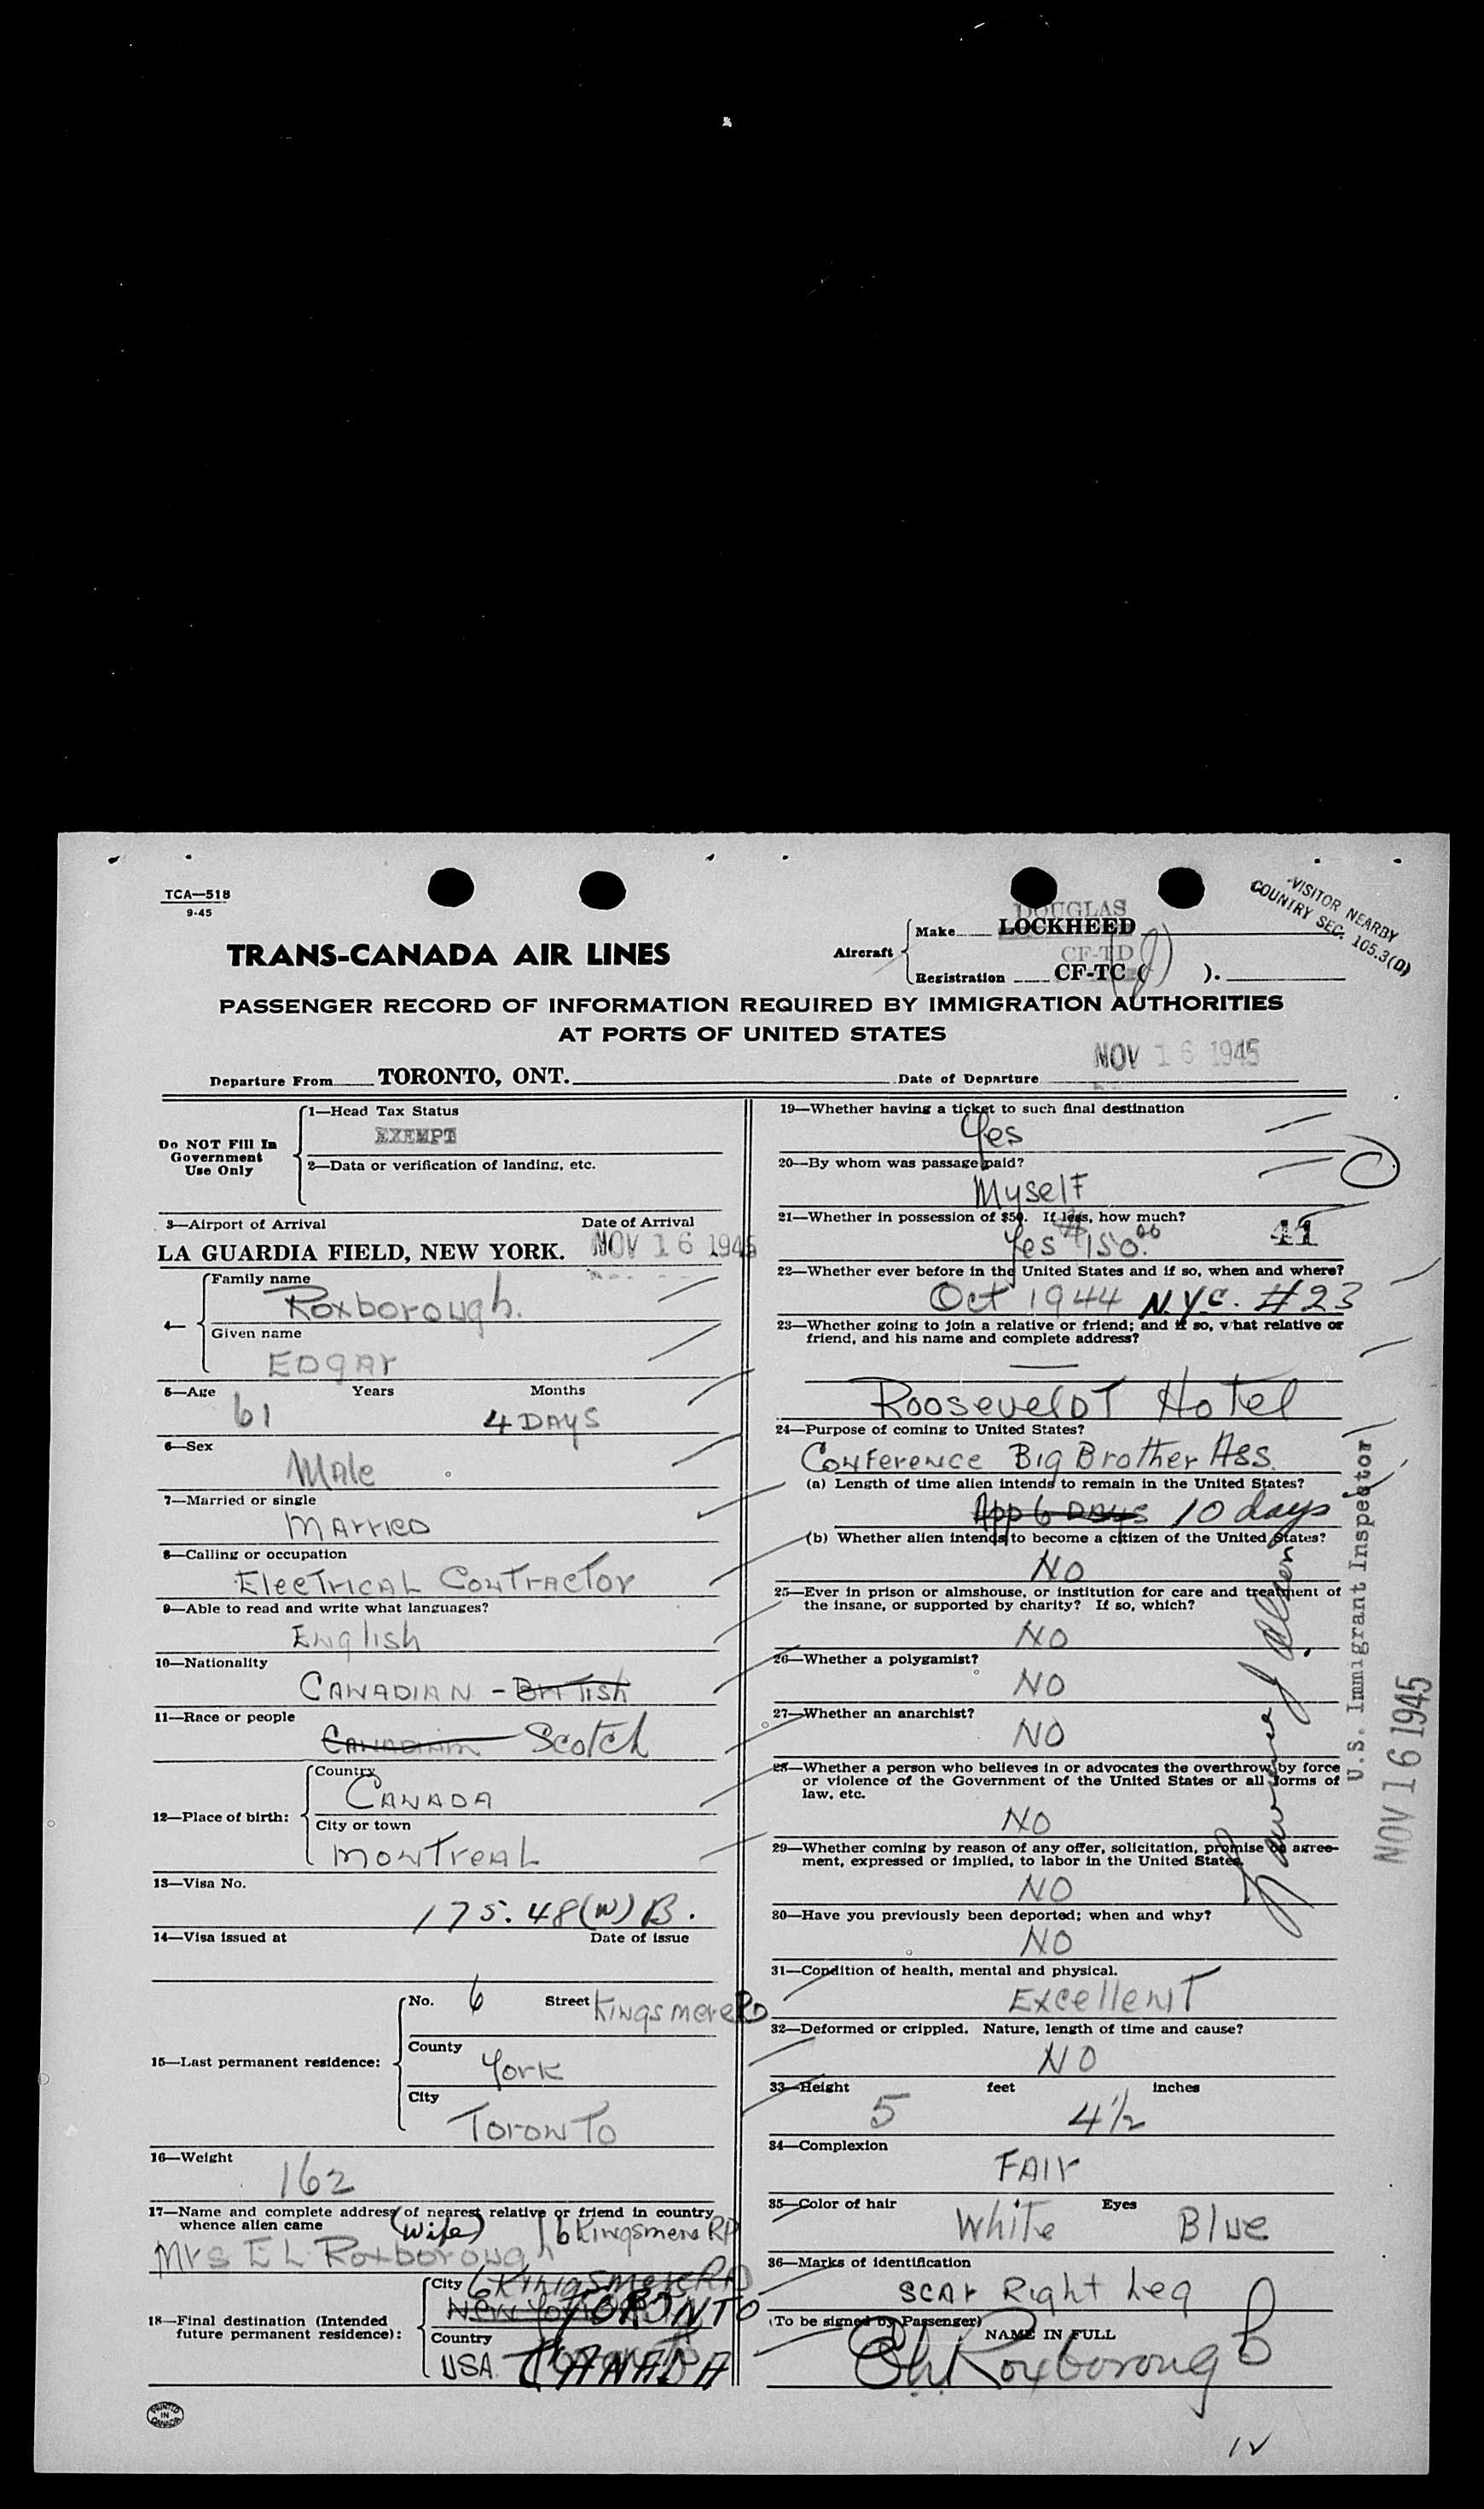 TCA—518
9-45
VISITOR NEARBY
COUNTRY SEC. 105.3(D)
TRANS-CANADA AIR LINES
Aircraft
Make
DOUGLAS
LOCKHEED
Registration
CF-TD
CF-TC ( ).
PASSENGER RECORD OF INFORMATION REQUIRED BY IMMIGRATION AUTHORITIES
AT PORTS OF UNITED STATES
Departure From TORONTO, ONT.
Date of Departure NOV 16 1945
Do NOT Fill In
Government
Use Only
1—Head Tax Status
EXEMPT
2—Data or verification of landing, etc.
3—Airport of Arrival
Date of Arrival
LA GUARDIA FIELD, NEW YORK. NOV 16 1945
4—
Family name
Roxborough.
Given name
EDgAr
5—Age Years Months
61 4 DAYS
6—Sex
MAle
7—Married or single
MArrieD
8—Calling or occupation
ElecTricAL ConTracTor
9—Able to read and write what languages?
English
10—Nationality
CANADIAN - BriTish
11—Race or people
Canadian Scotch
12—Place of birth:
Country
CANADA
City or town
MonTreAL
13—Visa No.
175.48(W) B.
14—Visa issued at Date of issue
15—Last permanent residence:
No. 6 Street Kingsmere RD
County
York
City
ToronTo
16—Weight
162
17—Name and complete address of nearest relative or friend in country
whence alien came
(Wife) 6 Kingsmere RD
Mrs E L Roxborough
18—Final destination (Intended
future permanent residence):
City 6 Kingsmere RD
New York TORONTO
Country
USA CANADA
PRINTED
IN
CANADA
19—Whether having a ticket to such final destination
Yes
20—By whom was passage paid?
Myself
21—Whether in possession of $50. If less, how much?
Yes $150.00
41
22—Whether ever before in the United States and if so, when and where?
Oct 1944 N.Y.C. #23
23—Whether going to join a relative or friend; and if so, what relative or
friend, and his name and complete address?
—
RooseveldT Hotel
24—Purpose of coming to United States?
Conference Big Brother Ass.
(a) Length of time alien intends to remain in the United States?
App 6 DAys 10 days
(b) Whether alien intends to become a citizen of the United States?
NO
25—Ever in prison or almshouse, or institution for care and treatment of
the insane, or supported by charity? If so, which?
NO
26—Whether a polygamist?
NO
27—Whether an anarchist?
NO
28—Whether a person who believes in or advocates the overthrow by force
or violence of the Government of the United States or all forms of
law, etc.
NO
29—Whether coming by reason of any offer, solicitation, promise or agree-
ment, expressed or implied, to labor in the United States.
NO
30—Have you previously been deported; when and why?
NO
31—Condition of health, mental and physical.
ExcellenT
32—Deformed or crippled. Nature, length of time and cause?
NO
33—Height feet inches
5 4½
34—Complexion
FAIr
35—Color of hair Eyes
White Blue
36—Marks of identification
scAr Right Leg
(To be signed by Passenger)
NAME IN FULL
E L Roxborough
U.S. Immigrant Inspector
NOV 16 1945